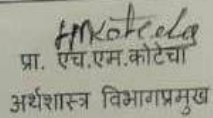 HMKotecha
प्रा. एच.एम.कोटेचा
अर्थशास्त्र विभागप्रमुख